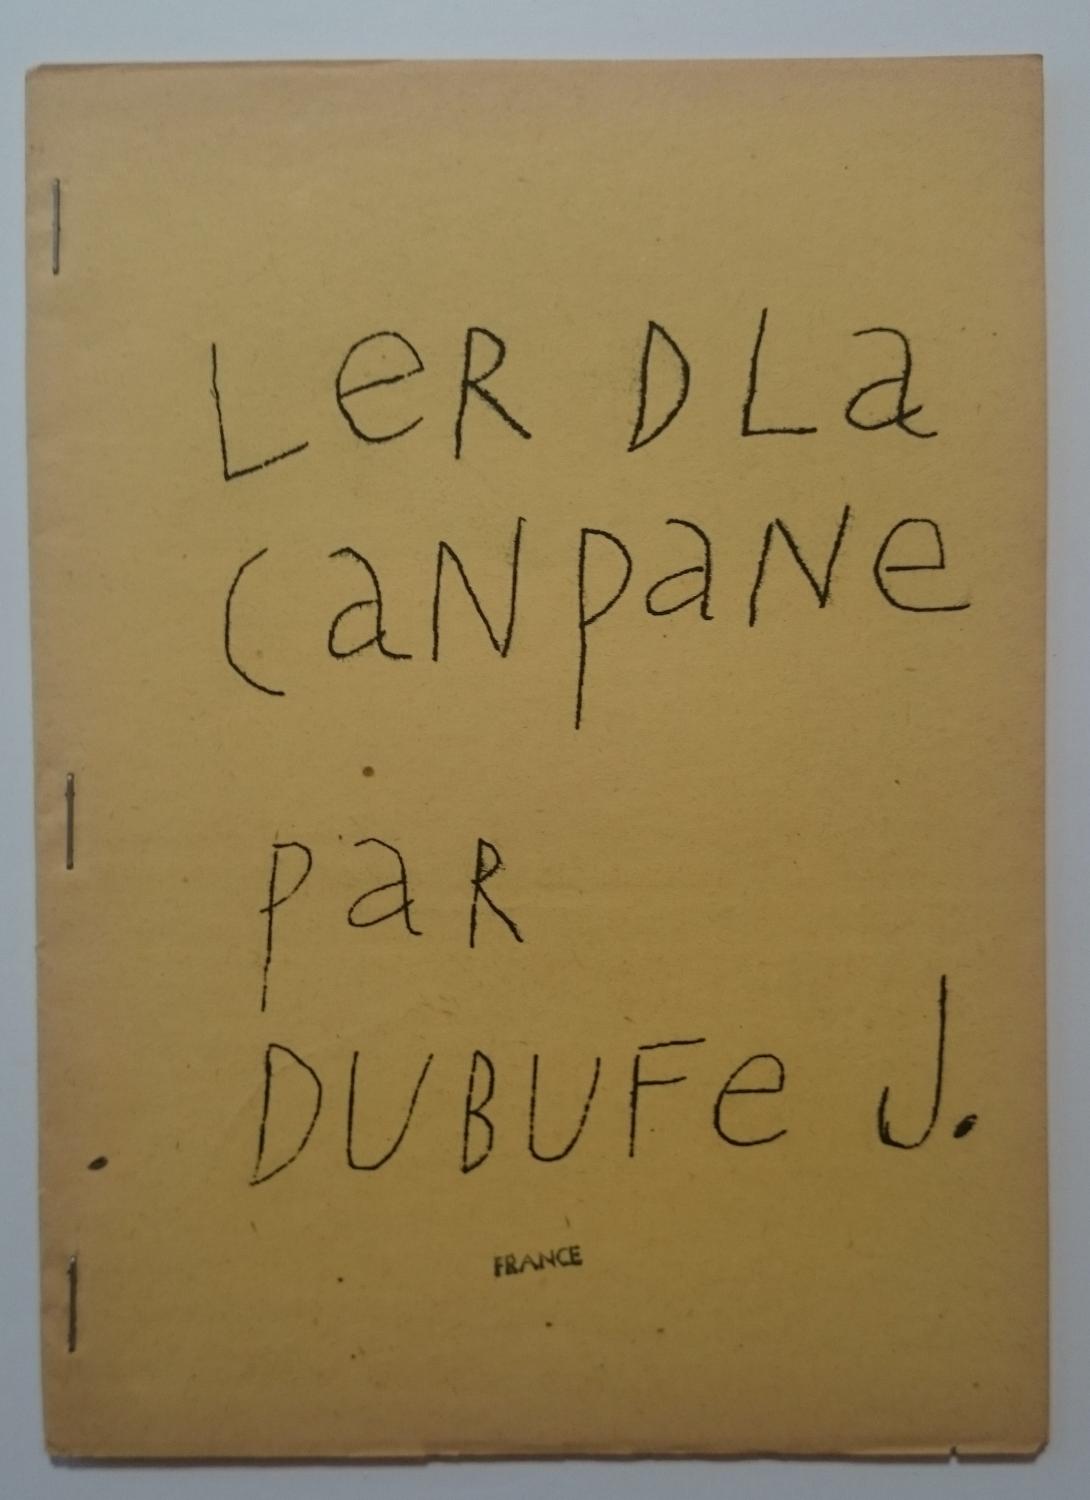 LeR DLa
CaNPaNe
PaR
DUBUFe J.
FRANCE